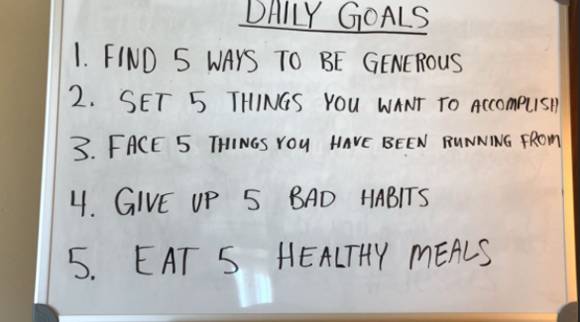 DAILY GOALS
1. FIND 5 WAYS TO BE GENEROUS
2. SET 5 THINGS YOU WANT TO ACCOMPLISH
3. FACE 5 THINGS YOU HAVE BEEN RUNNING FROM
4. GIVE UP 5 BAD HABITS
5. EAT 5 HEALTHY MEALS